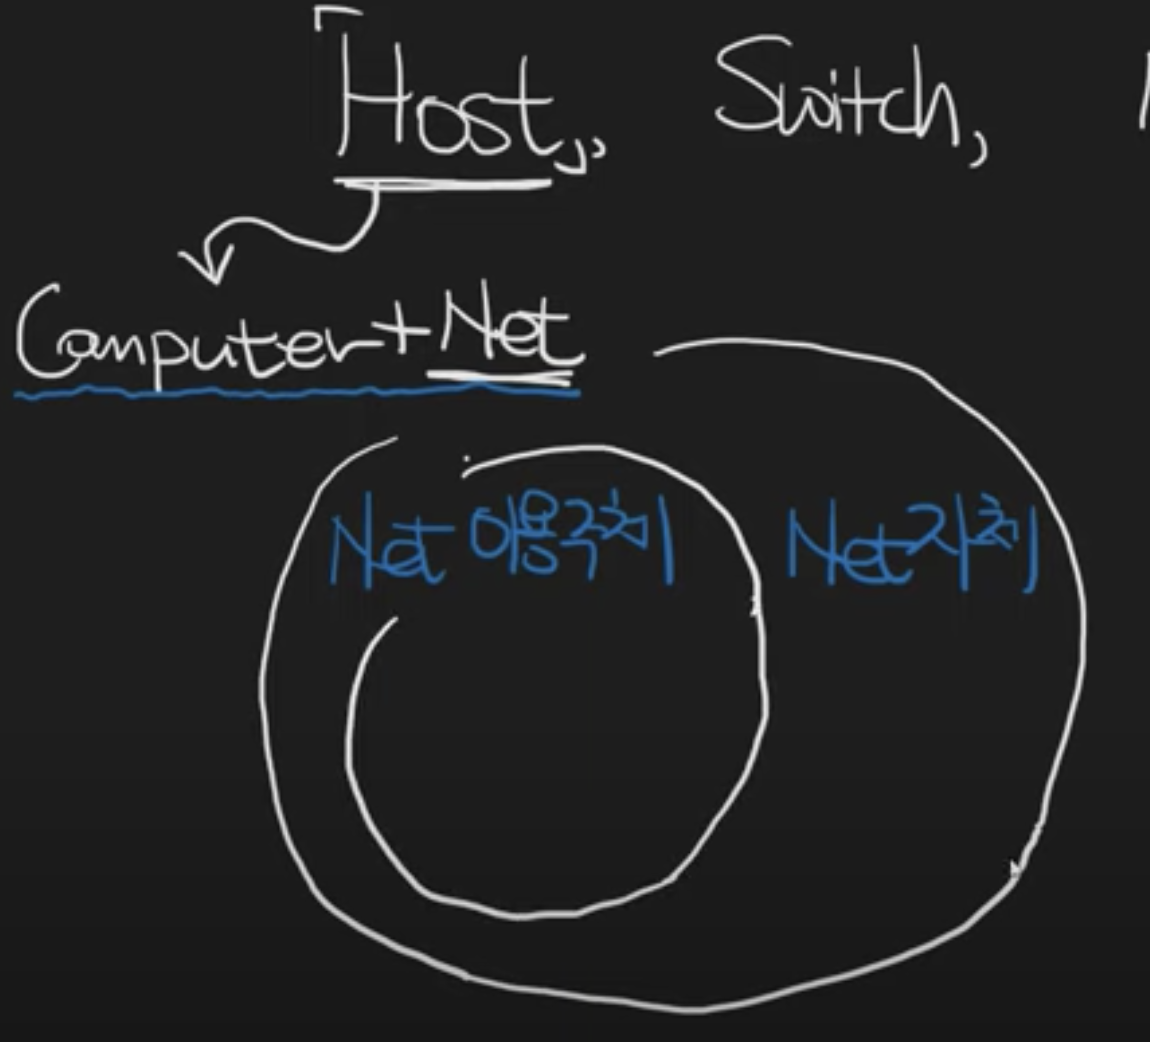 「Host」, Switch,
Computer+Net
Net 이용주체 Net 자체